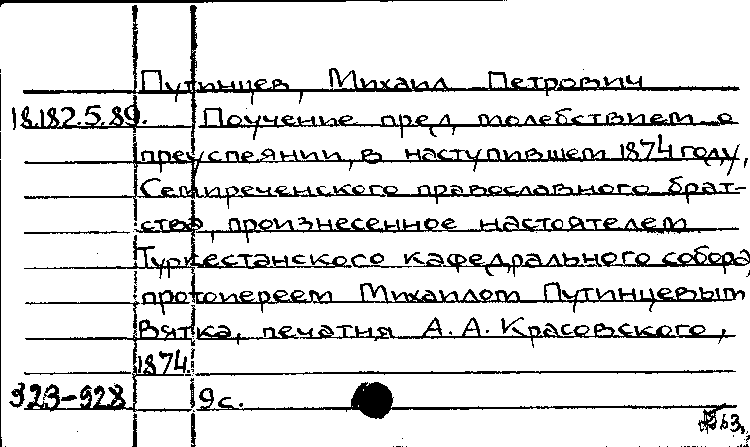 Путинцев, Михаил Петрович
18.182.5.89. Поучение пред молебствием о
преуспеянии, в наступившем 1874 году,
Семиреченского православного брат-
ства, произнесенное настоятелем
Туркестанского кафедрального собора
протоиереем Михаилом Путинцевым
Вятка, печатня А. А. Красовского,
1874.
923-928 9 с.